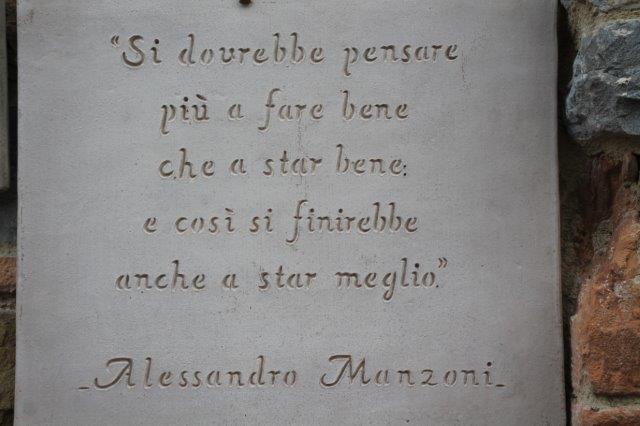 “Si dovrebbe pensare
più a fare bene
che a star bene:
e così si finirebbe
anche a star meglio.”
_Alessandro Manzoni_